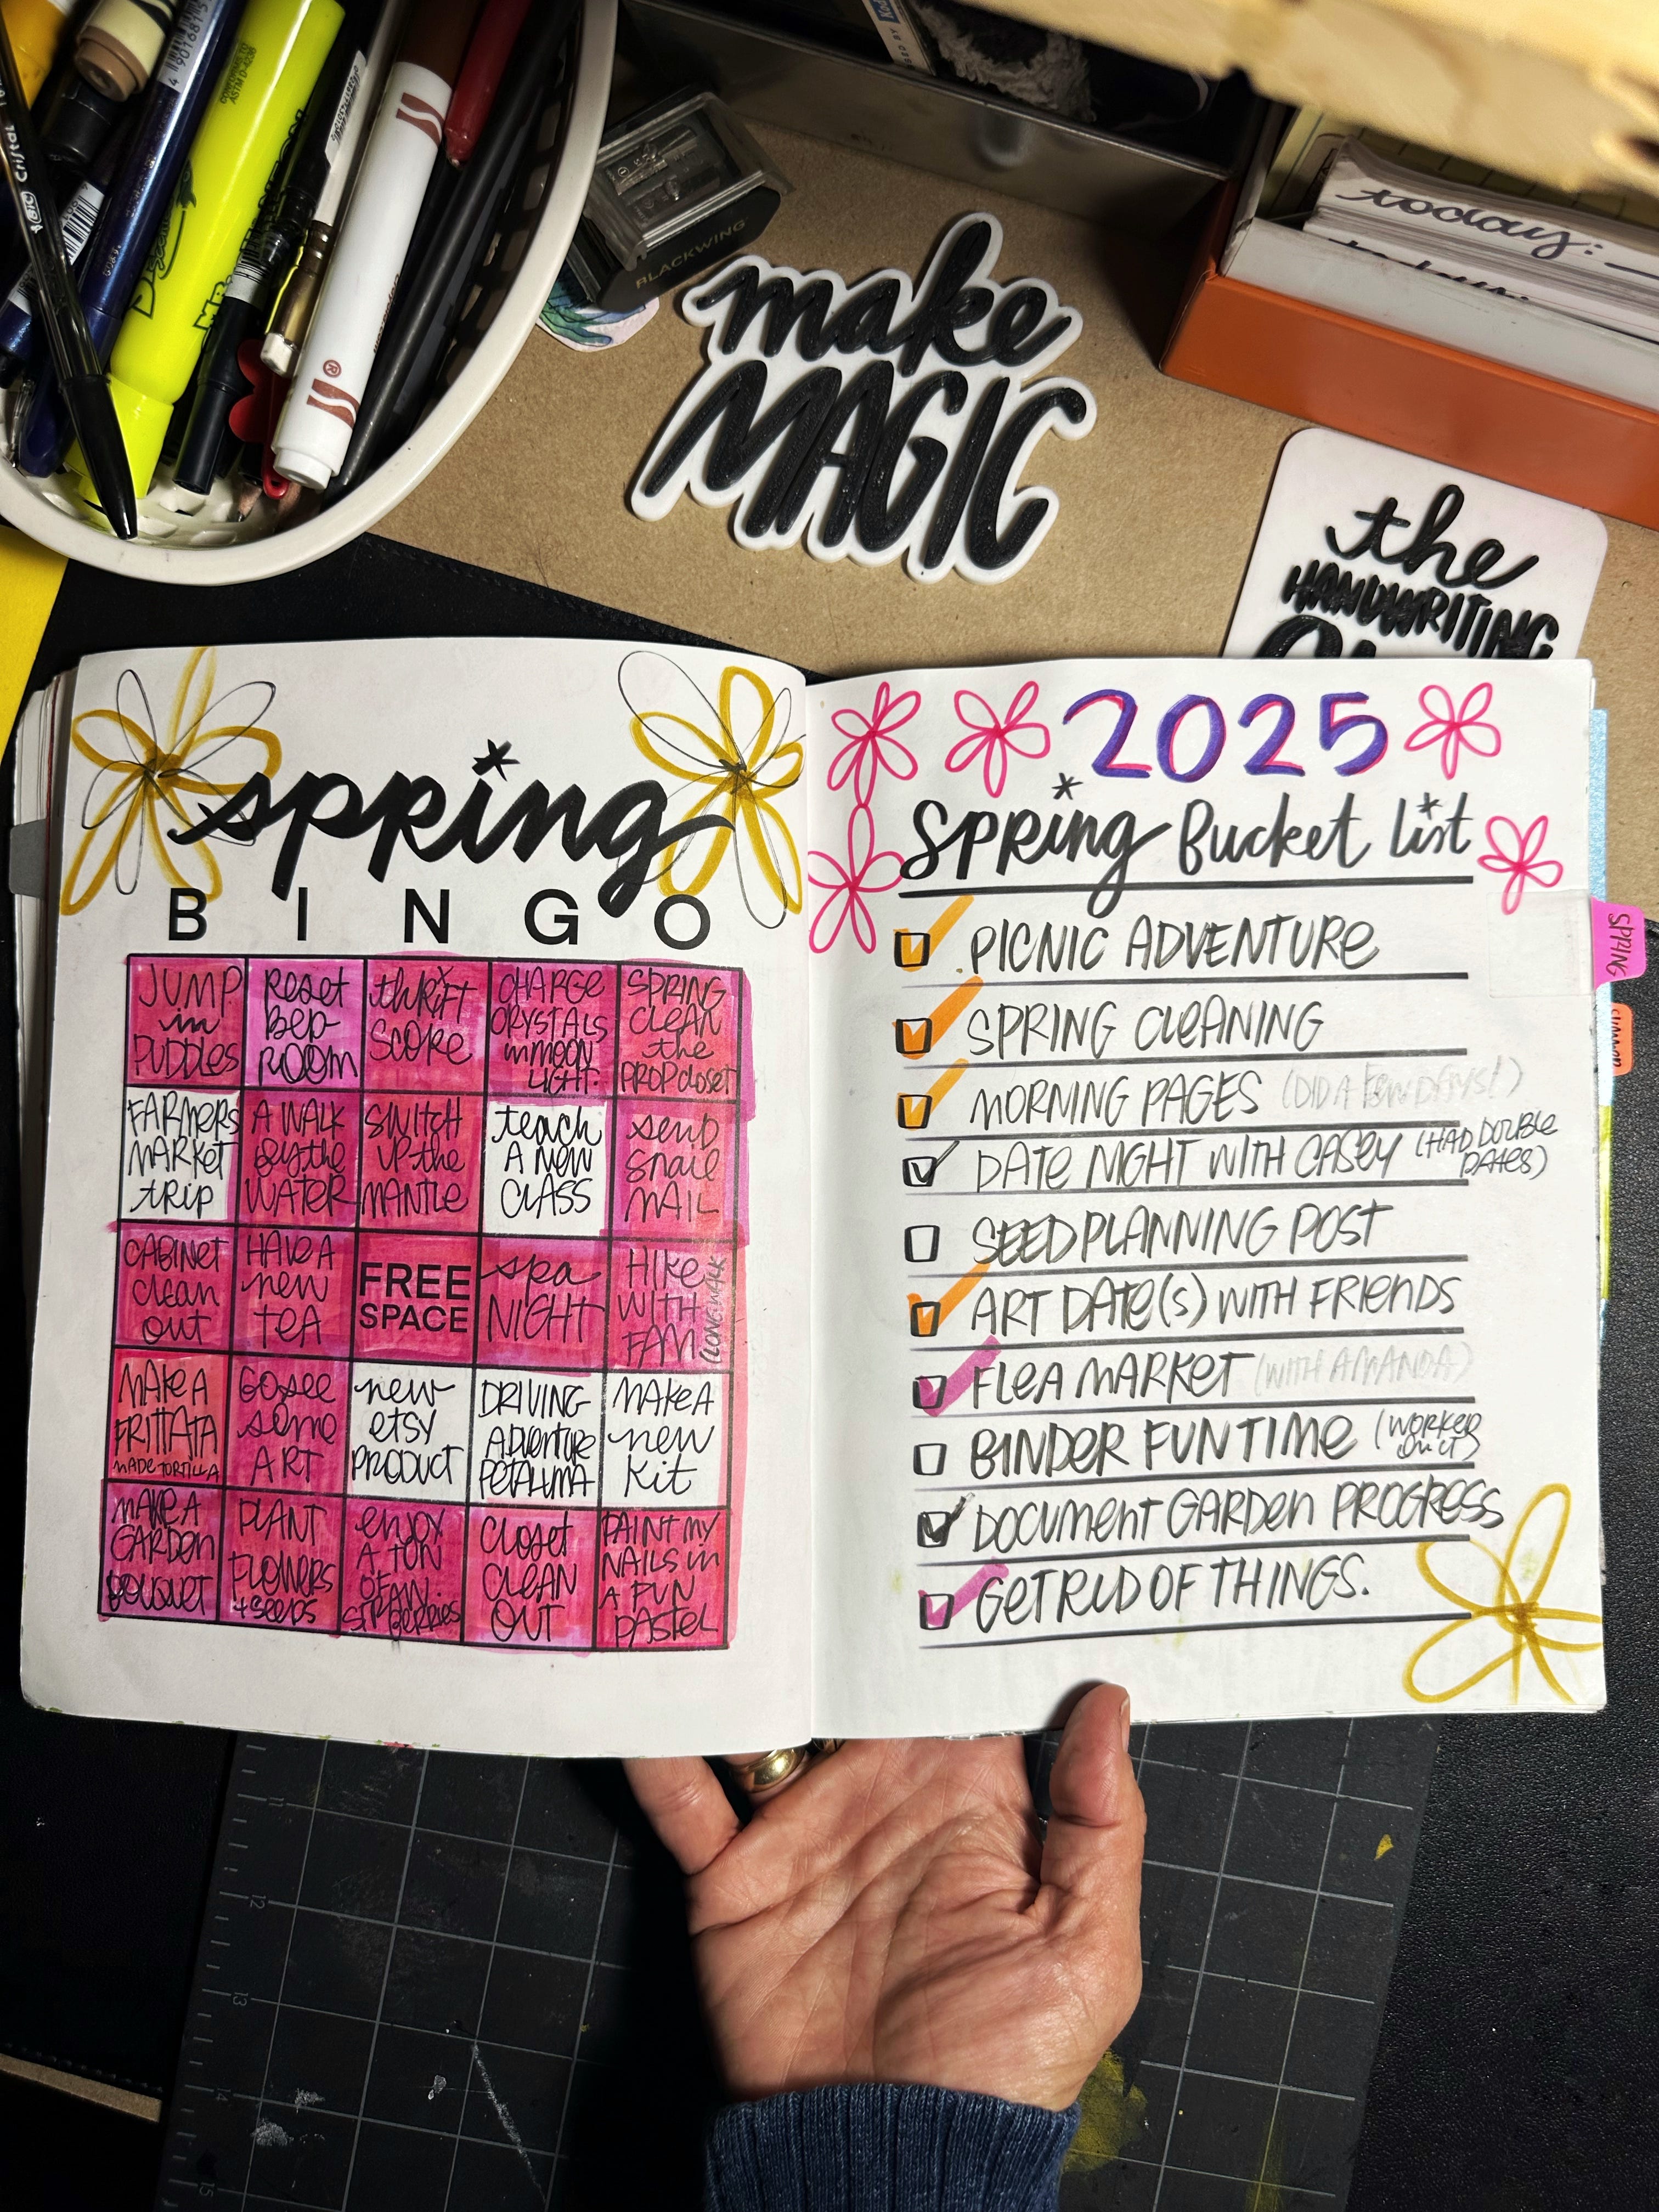 BIC Cristal
4 901681 5
CONFORMS TO
ASTM D-4236
BLACKWING
Kodak
today:
make
MAGIC
the
HANDWRITING
spring
B I N G O
JUMP
in
PUDDLES
Reset
BED-
ROOM
thRiFT
SCORE
CHARGE
CRYSTALS
in MOON
LIGHT.
SPRING
CLEAN
the
PROP closet
FARMERS
MARKET
tRIP
A WALK
by the
WATER
SWITCH
UP the
MANTLE
teach
A NEW
CLASS
send
snail
MAIL
CABINET
clean
out
HAVE A
new
TEA
FREE
SPACE
spa
NIGHT
HIKE
WITH
FAM
(LONG WALK
MAKE A
FRITTATA
MADE TORTILLA
GO see
some
ART
new
etsy
PRODUCT
DRIVING
ADVENTURE
PETALUMA
MAKE A
new
kit
MAKE A
GARDEN
BOUQUET
PLANT
FLOWERS
+ SEEDS
enjoy
A TON
OF
CLOSET
CLEAN
OUT
PAINT MY
NAILS in
A FUN
PASTEL
2025
Spring Bucket List
PICNIC ADVENTURE
SPRING CLEANING
MORNING PAGES (DID A FEW DAYS!)
DATE NIGHT WITH CASEY (HAD DOUBLE
DATES)
SEED PLANNING POST
ART DATE(S) WITH FRIENDS
FLEA MARKET (WITH AMANDA)
BINDER FUN TIME (WORKED
ON IT)
DOCUMENT GARDEN PROGRESS
GET RID OF THINGS.
SPRING
SUMMER
12
13
14
15